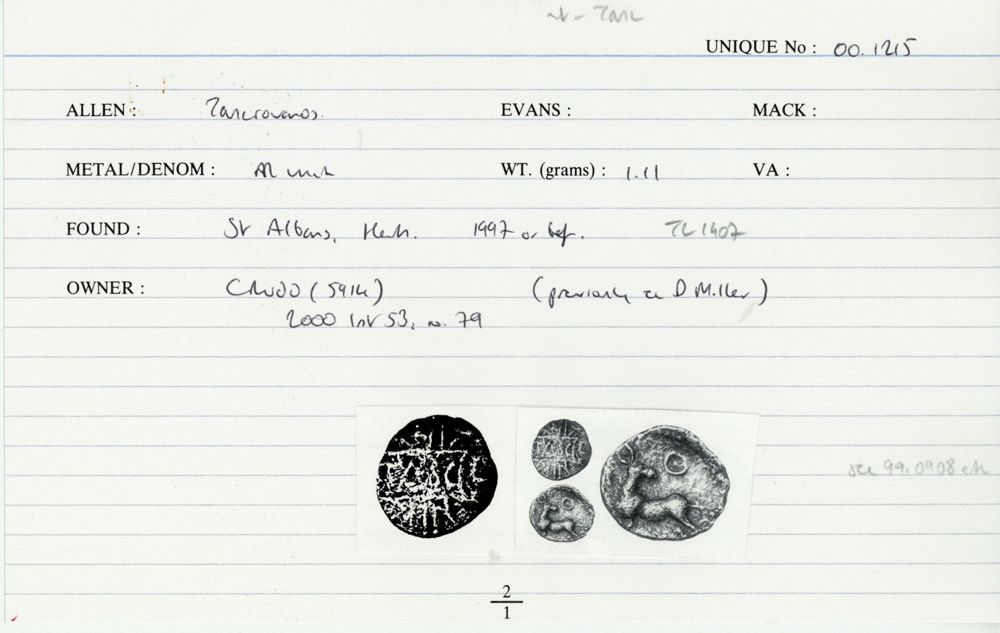 UNIQUE No : 00.1215
ALLEN : Tasciovanus.
EVANS :
MACK :
METAL/DENOM : AR unit
WT. (grams) : 1.11
VA :
FOUND : St Albans, Herts. 1997 or bef. TL 1407
OWNER : CRUDD (591K) (previously D Miller)
2000 list 53, no. 79
see 99.0908 etc
2
1